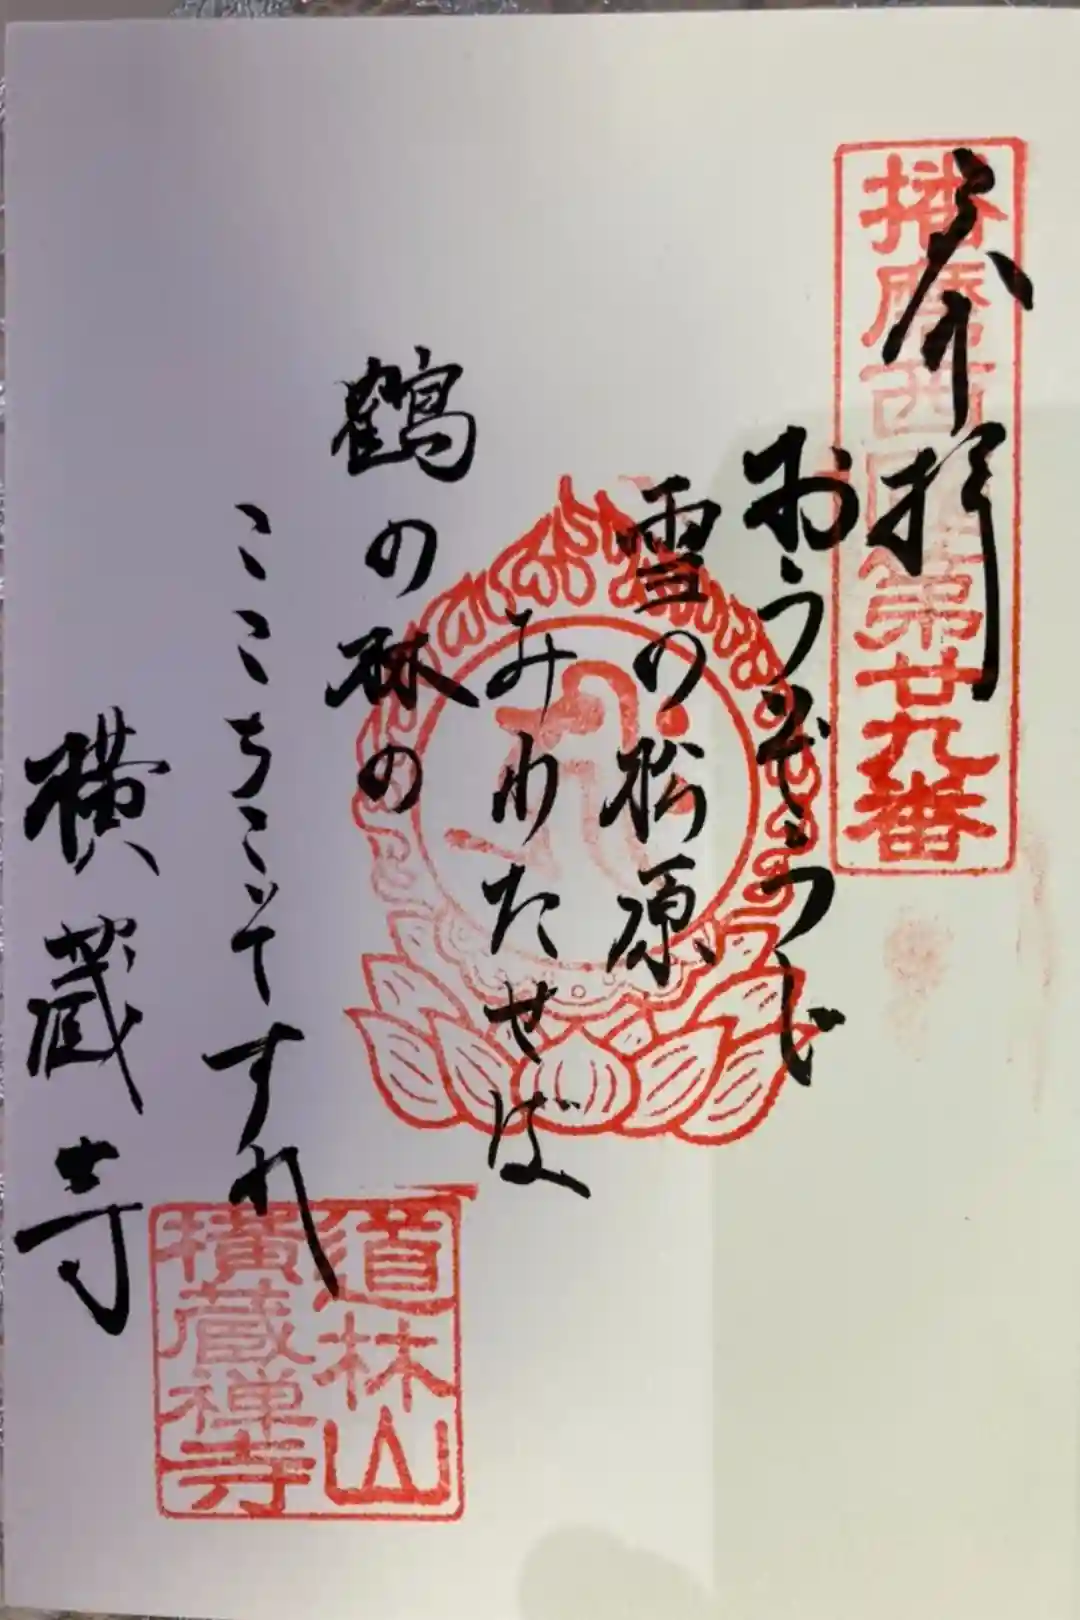 奉拝
播磨西国第廿九番
おうぞうじ
雪の松原
みわたせば
鶴の林の
こここちこそすれ
横蔵寺
道林山
横蔵禅寺